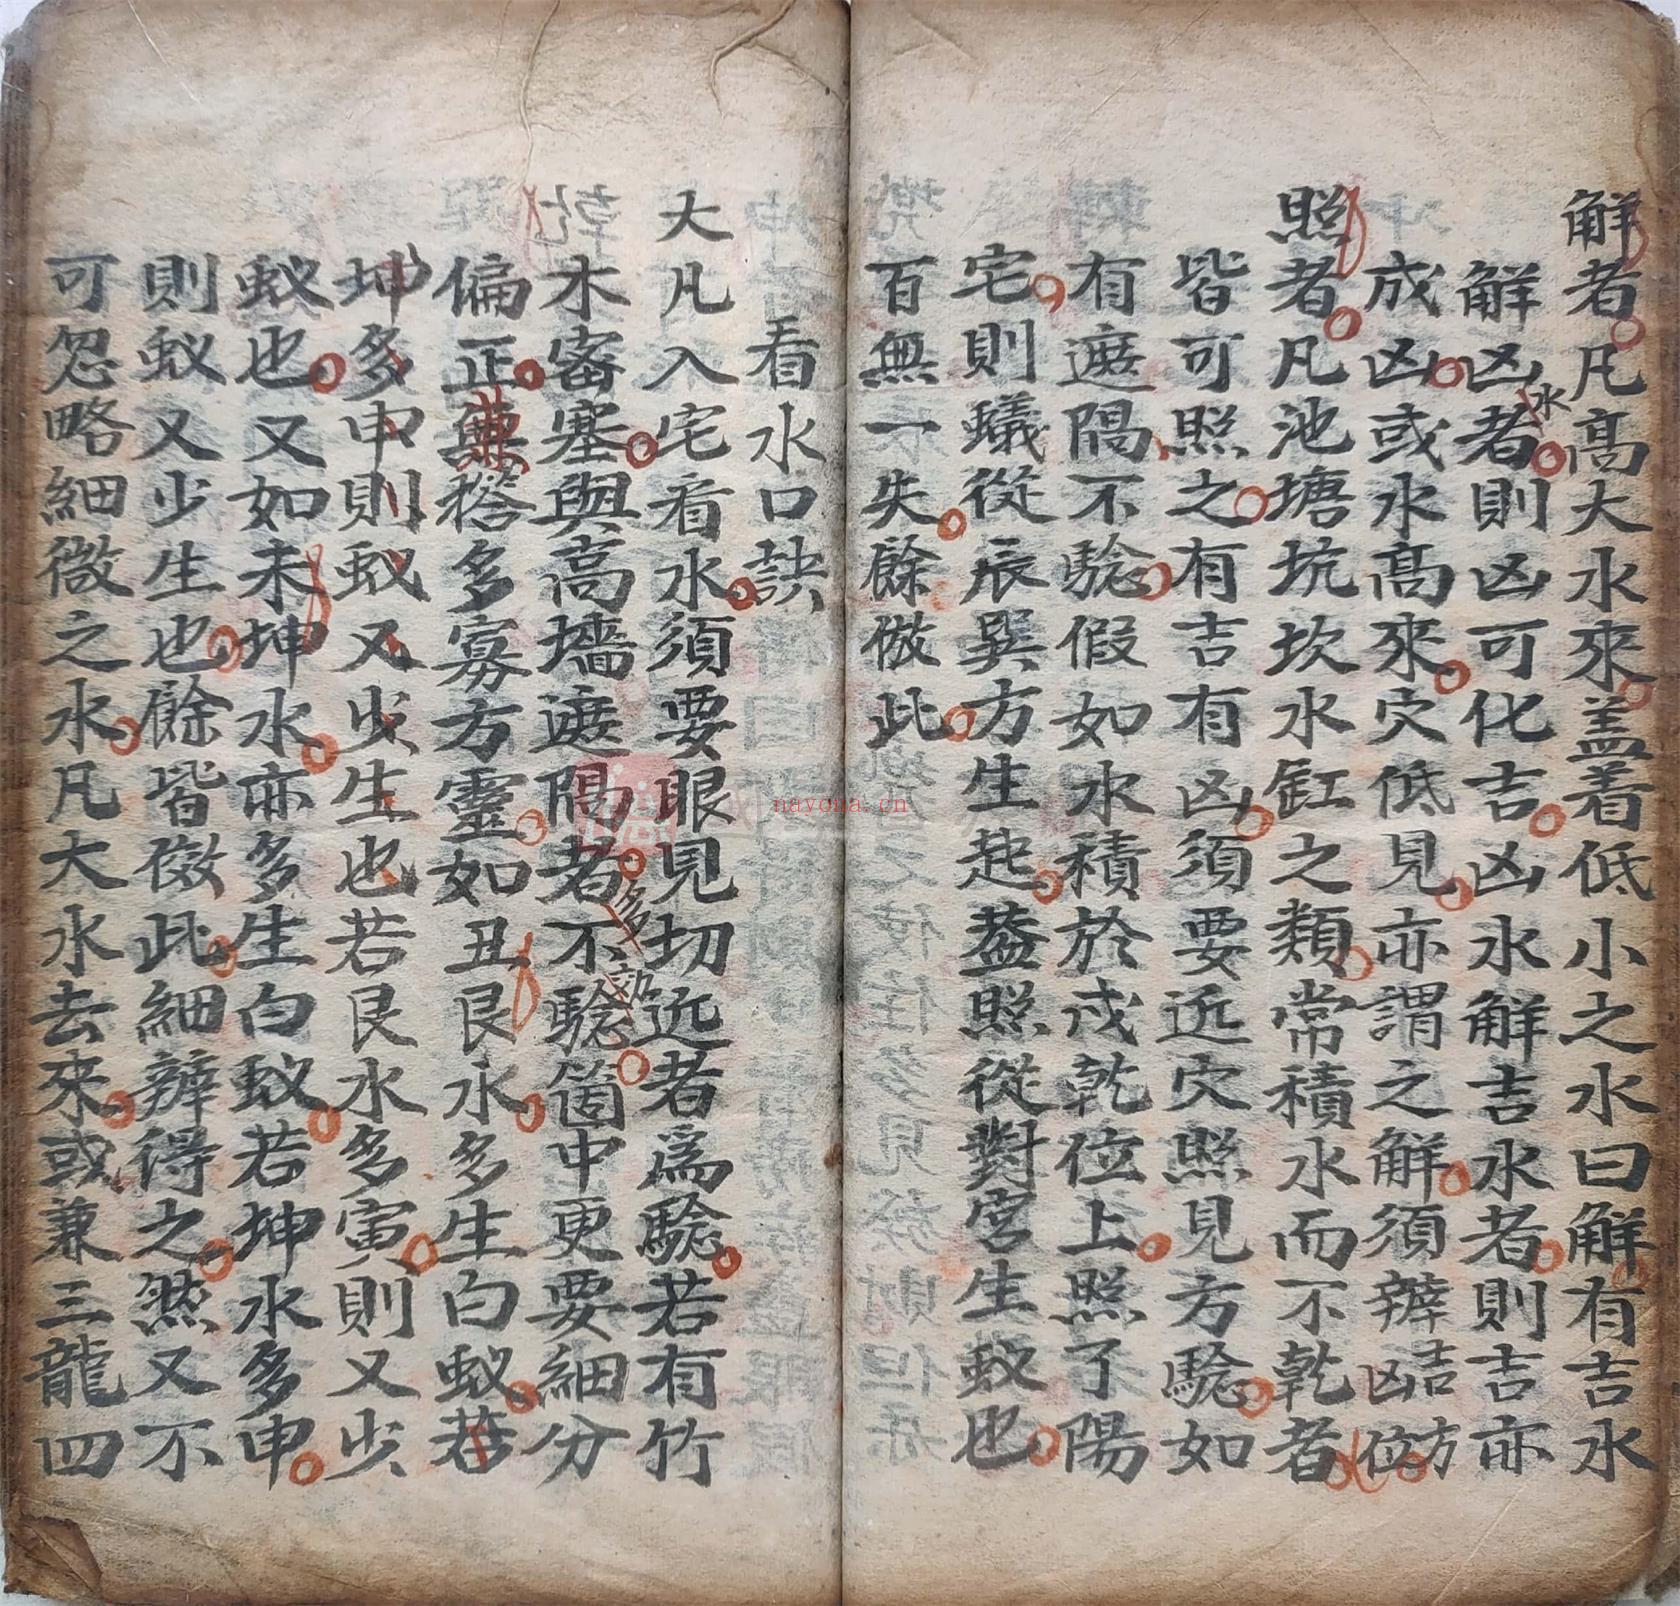 解者凡高大水來盖着低小之水曰解有吉水
解凶水者則凶可化吉凶水解吉水者則吉亦
成凶或水高來穴低見亦謂之解須辨吉凶方位
照者凡池塘坑坎水缸之類常積水而不乾者
皆可照之有吉有凶須要近穴照見方驗如
有遮隔不驗假如水積於戍乾位上照了陽
宅則蟻從辰巽方生起蓋照從對宮生蚁也
百無一失餘倣此
看水口訣
大凡入宅看水須要眼見切近者為驗若有竹
木審塞與高墻遮隔者多不驗箇中更要細分
偏正兼搭多寡方靈如丑艮水多生白蚁若
坤多申則蚁又少生也若艮水多寅則又少
蚁也又如未坤水亦多生白蚁若坤水多申
則蚁又少生也餘皆倣此細辨得之然又不
可忽略細微之水凡大水去來或兼三龍四
nayona.cn